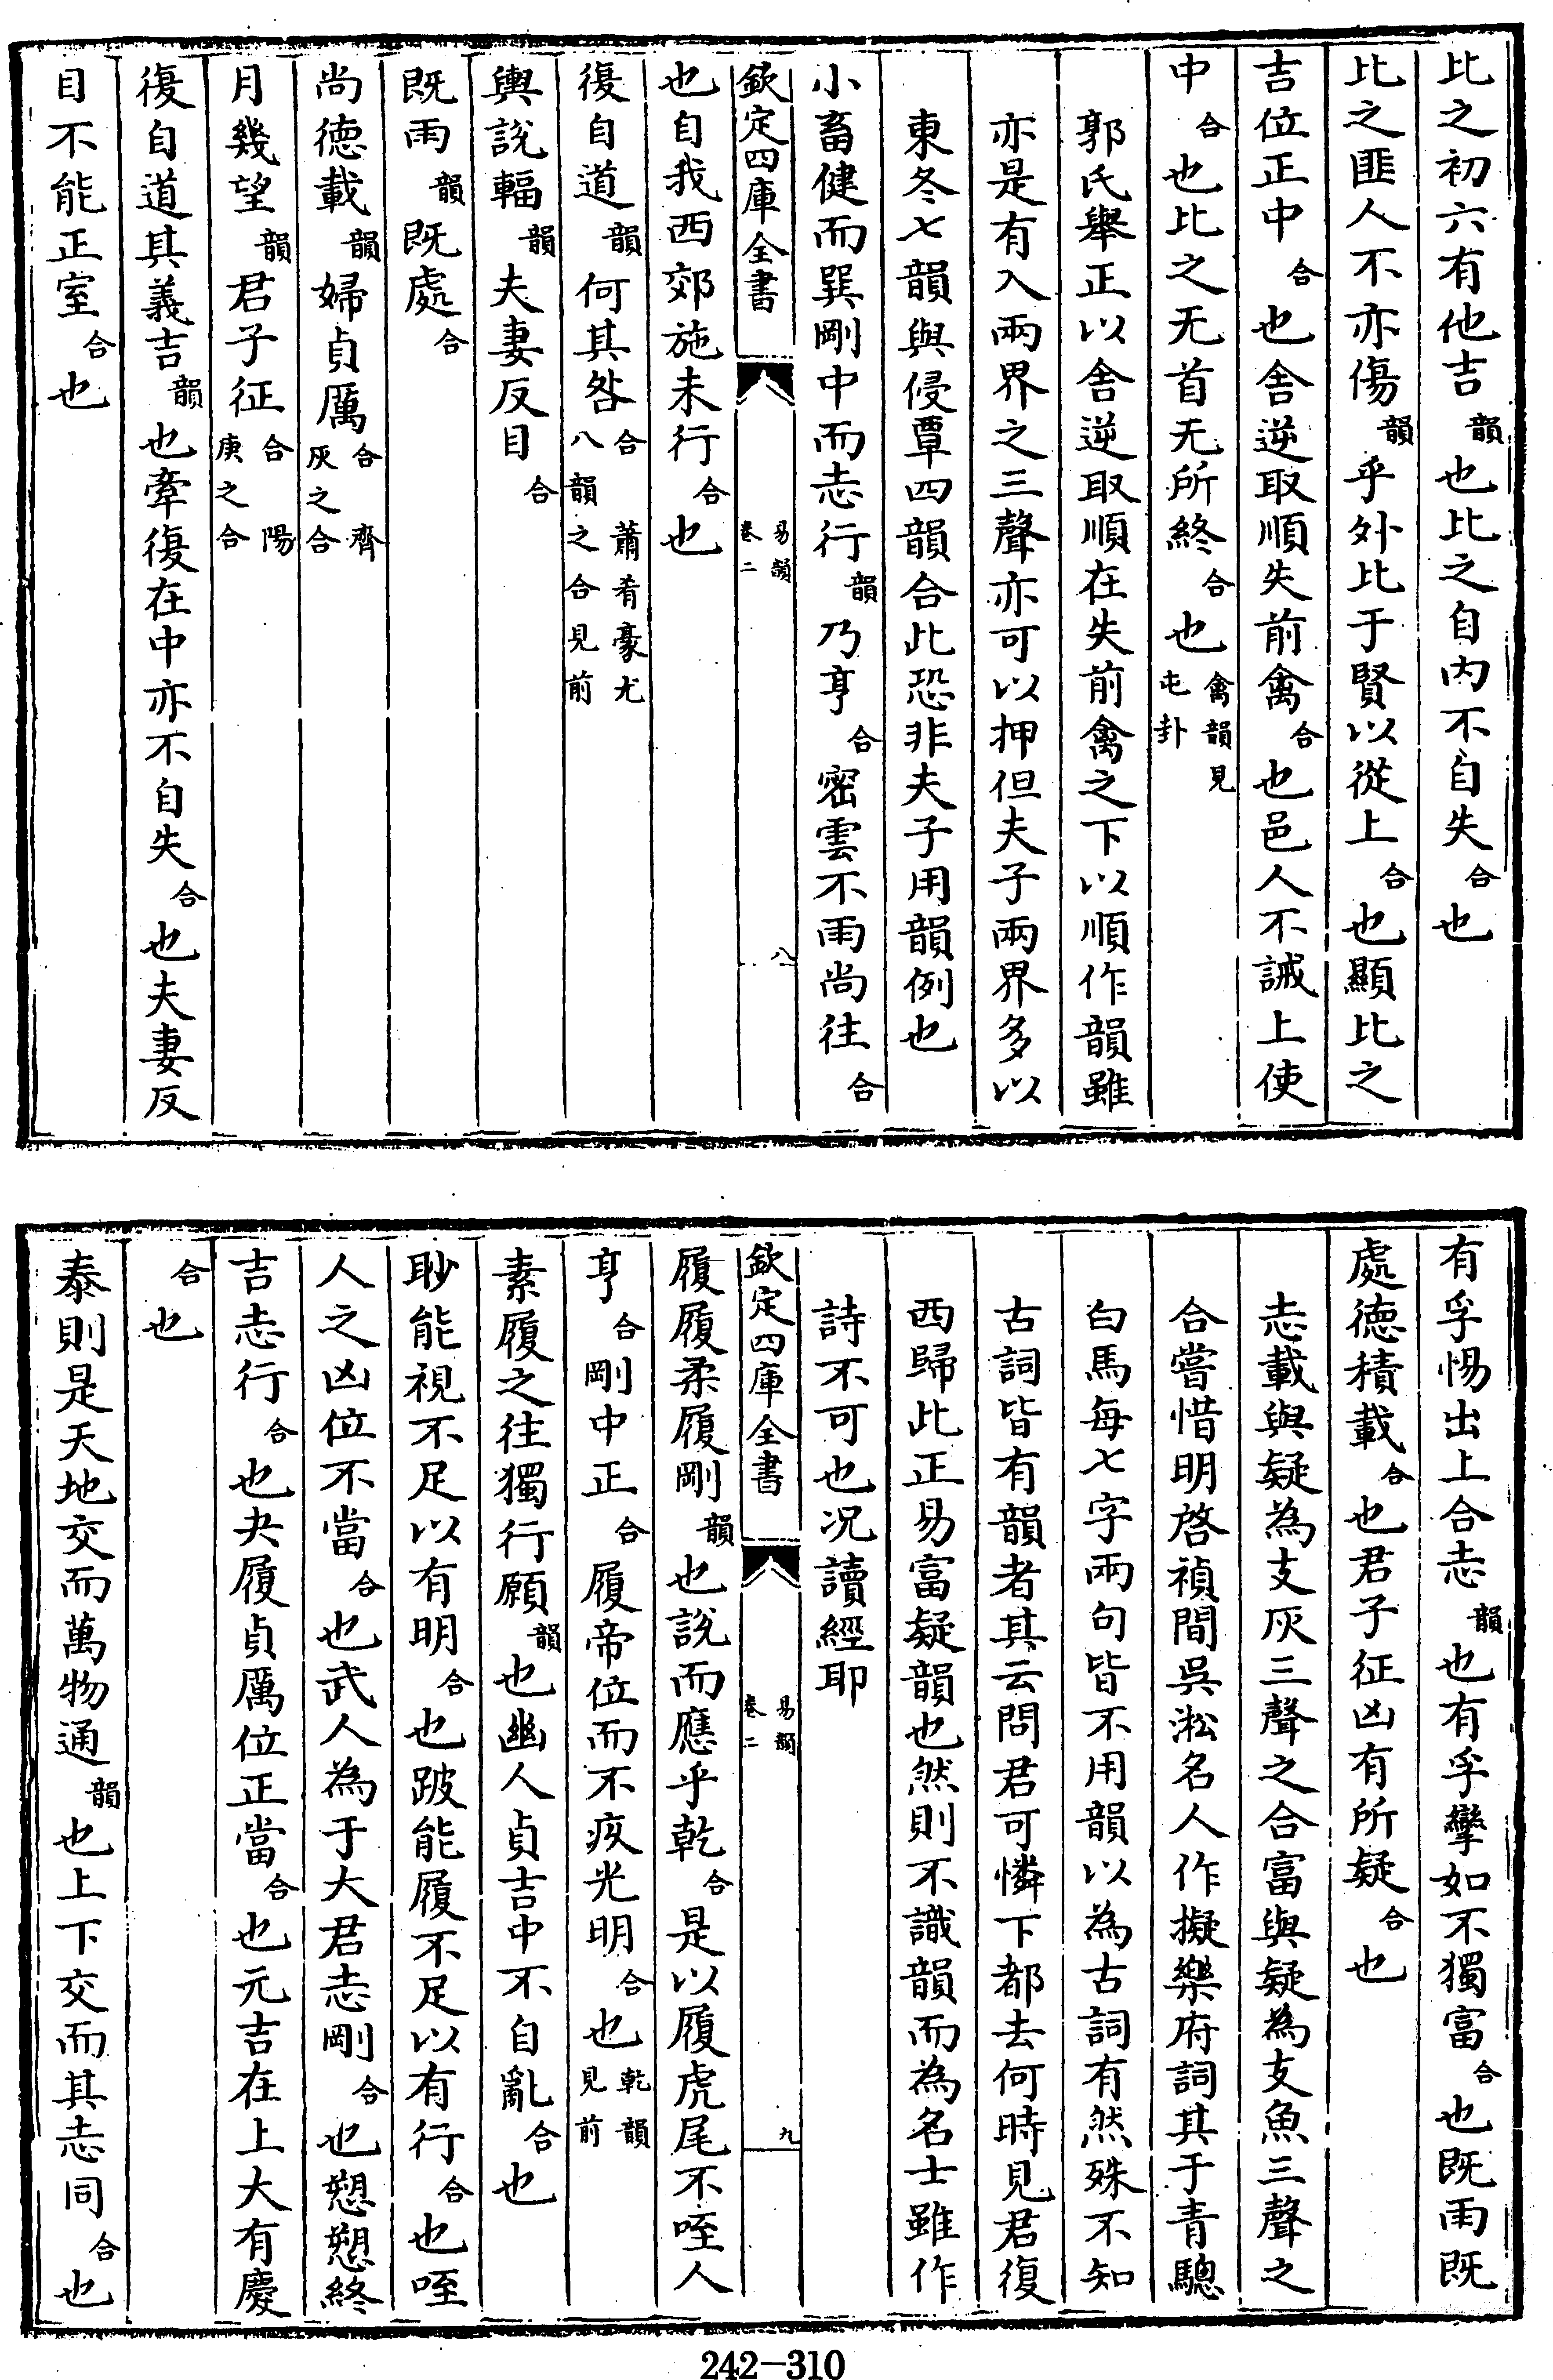 比之初六有他吉韻也比之自内不自失合也
比之匪人不亦傷韻乎外比于賢以從上合也顯比之
吉位正中合也舍逆取順失前禽合也邑人不誡上使
中合也比之无首无所終合也禽韻見屯卦
郭氏舉正以舍逆取順在失前禽之下以順作韻雖
亦是有入兩界之三聲亦可以押但夫子兩界多以
東冬七韻與侵覃四韻合此恐非夫子用韻例也
小畜健而巽剛中而志行韻乃亨合密雲不雨尚往合
欽定四庫全書 易韻卷二 八
也自我西郊施未行合也
復自道韻何其咎合 蕭肴豪尤八韻之合見前
輿說輻韻夫妻反目合
既雨韻既處合
尚德載韻婦貞厲合 齊灰之合
月幾望韻君子征合 陽庚之合
復自道其義吉韻也牽復在中亦不自失合也夫妻反
目不能正室合也
有孚惕出上合志韻也有孚攣如不獨富合也既雨既
處德積載合也君子征凶有所疑合也
志載與疑為支灰三聲之合富與疑為支魚三聲之
合嘗惜明啓禎間吳淞名人作擬樂府詞其于青驄
白馬每七字兩句皆不用韻以為古詞有然殊不知
古詞皆有韻者其云問君可憐下都去何時見君復
西歸此正易富疑韻也然則不識韻而為名士雖作
詩不可也况讀經耶
欽定四庫全書 易韻卷二 九
履履柔履剛韻也說而應乎乾合是以履虎尾不咥人
亨合剛中正合履帝位而不疚光明合也乾韻見前
素履之往獨行願韻也幽人貞吉中不自亂合也
眇能視不足以有明合也跛能履不足以有行合也咥
人之凶位不當合也武人為于大君志剛合也愬愬終
吉志行合也夬履貞厲位正當合也元吉在上大有慶
合也
泰則是天地交而萬物通韻也上下交而其志同合也
242-310